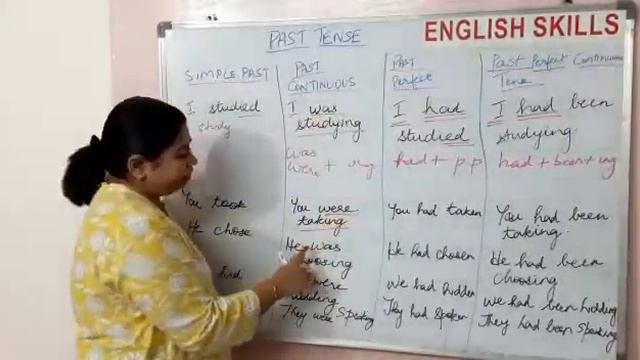 ENGLISH SKILLS
PAST TENSE
SIMPLE PAST
I studied
study
You took
He chose
PAST
CONTINUOUS
I was
studying
was
were + ing
You were
taking
He was
choosing
were
They were Speaking
Past
Perfect
I had
studied
had + p p
You had taken
He had chosen
We had hidden
They had Spoken
Past Perfect Continuous
Tense
I had been
studying
had + been + ing
You had been
taking.
He had been
choosing
We had been hidding
They had been Speaking